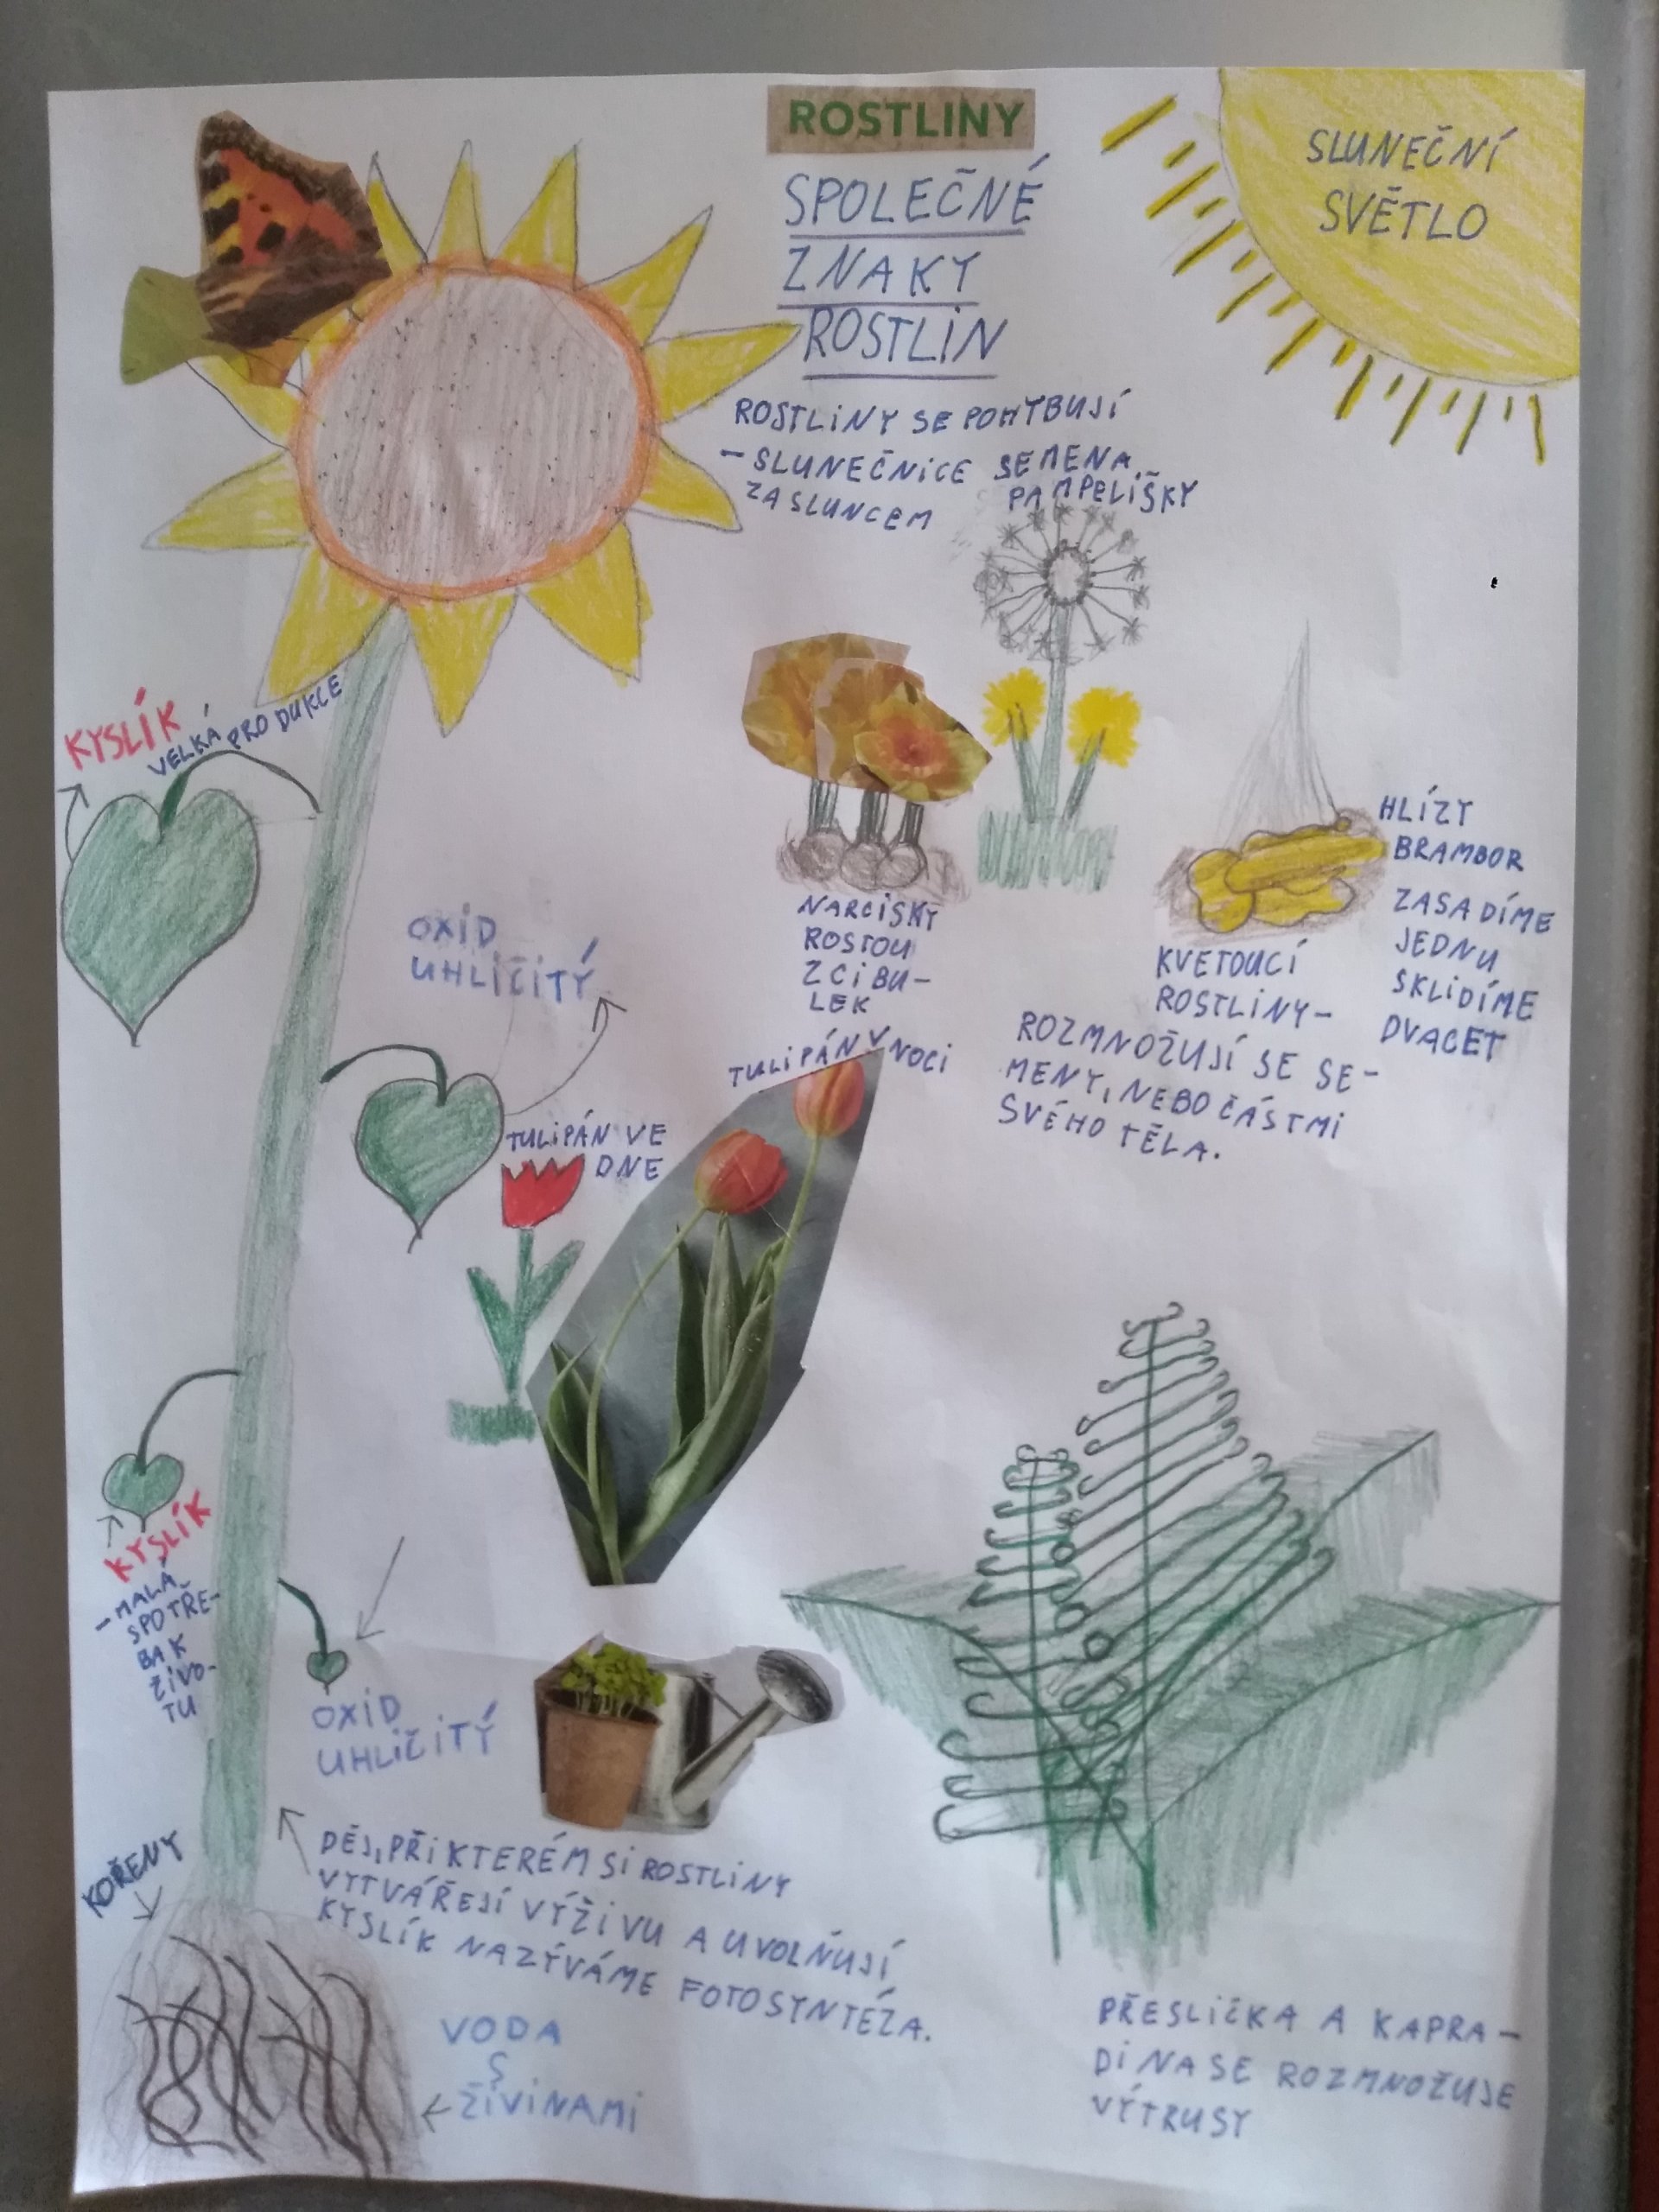 ROSTLINY
SPOLEČNÉ
ZNAKY
ROSTLIN
SLUNEČNÍ
SVĚTLO
ROSTLINY SE POHYBUJÍ
- SLUNEČNICE
ZA SLUNCEM
SEMENA
PAMPELIŠKY
KYSLÍK
VELKÁ PRODUKCE
OXID
UHLIČITÝ
NARCISKY
ROSTOU
Z CIBU-
LEK
HLÍZY
BRAMBOR
ZASADÍME
JEDNU
SKLIDÍME
DVACET
KVETOUCÍ
ROSTLINY-
ROZMNOŽUJÍ SE SE-
MENY, NEBO ČÁSTMI
SVÉHO TĚLA.
TULIPÁN V NOCI
TULIPÁN VE
DNE
KYSLÍK
- MALÁ
SPOTŘE-
BA K
ŽIVO-
TU
OXID
UHLIČITÝ
KOŘENY
DĚJ, PŘI KTERÉM SI ROSTLINY
VYTVÁŘEJÍ VÝŽIVU A UVOLŇUJÍ
KYSLÍK NAZÝVÁME FOTOSYNTÉZA.
VODA
S
ŽIVINAMI
PŘESLIČKA A KAPRA-
DINA SE ROZMNOŽUJE
VÝTRUSY